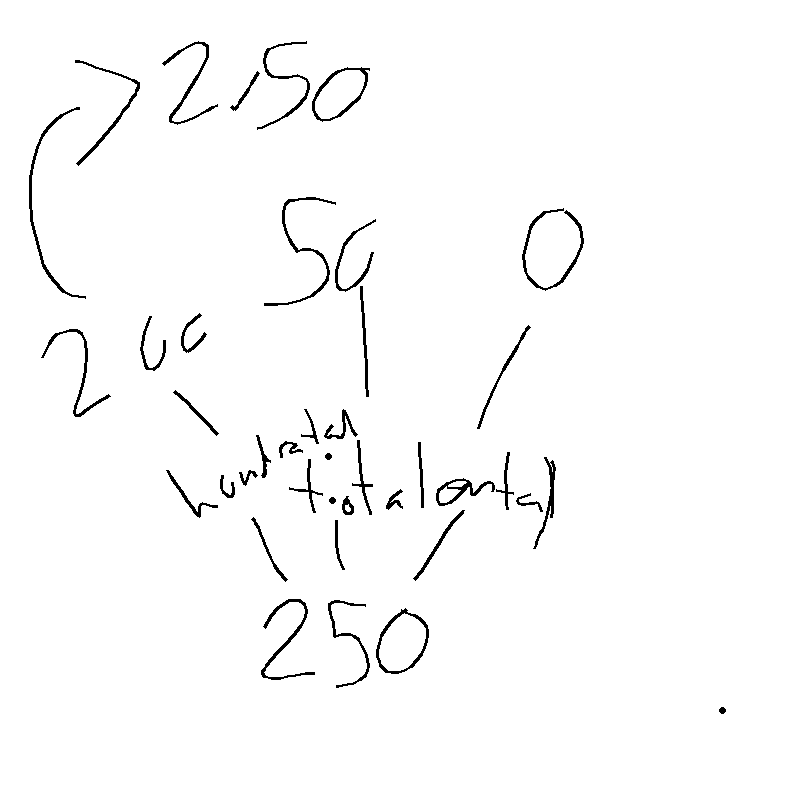 2,50
50
0
200
hundratal
tiotal
ental
250